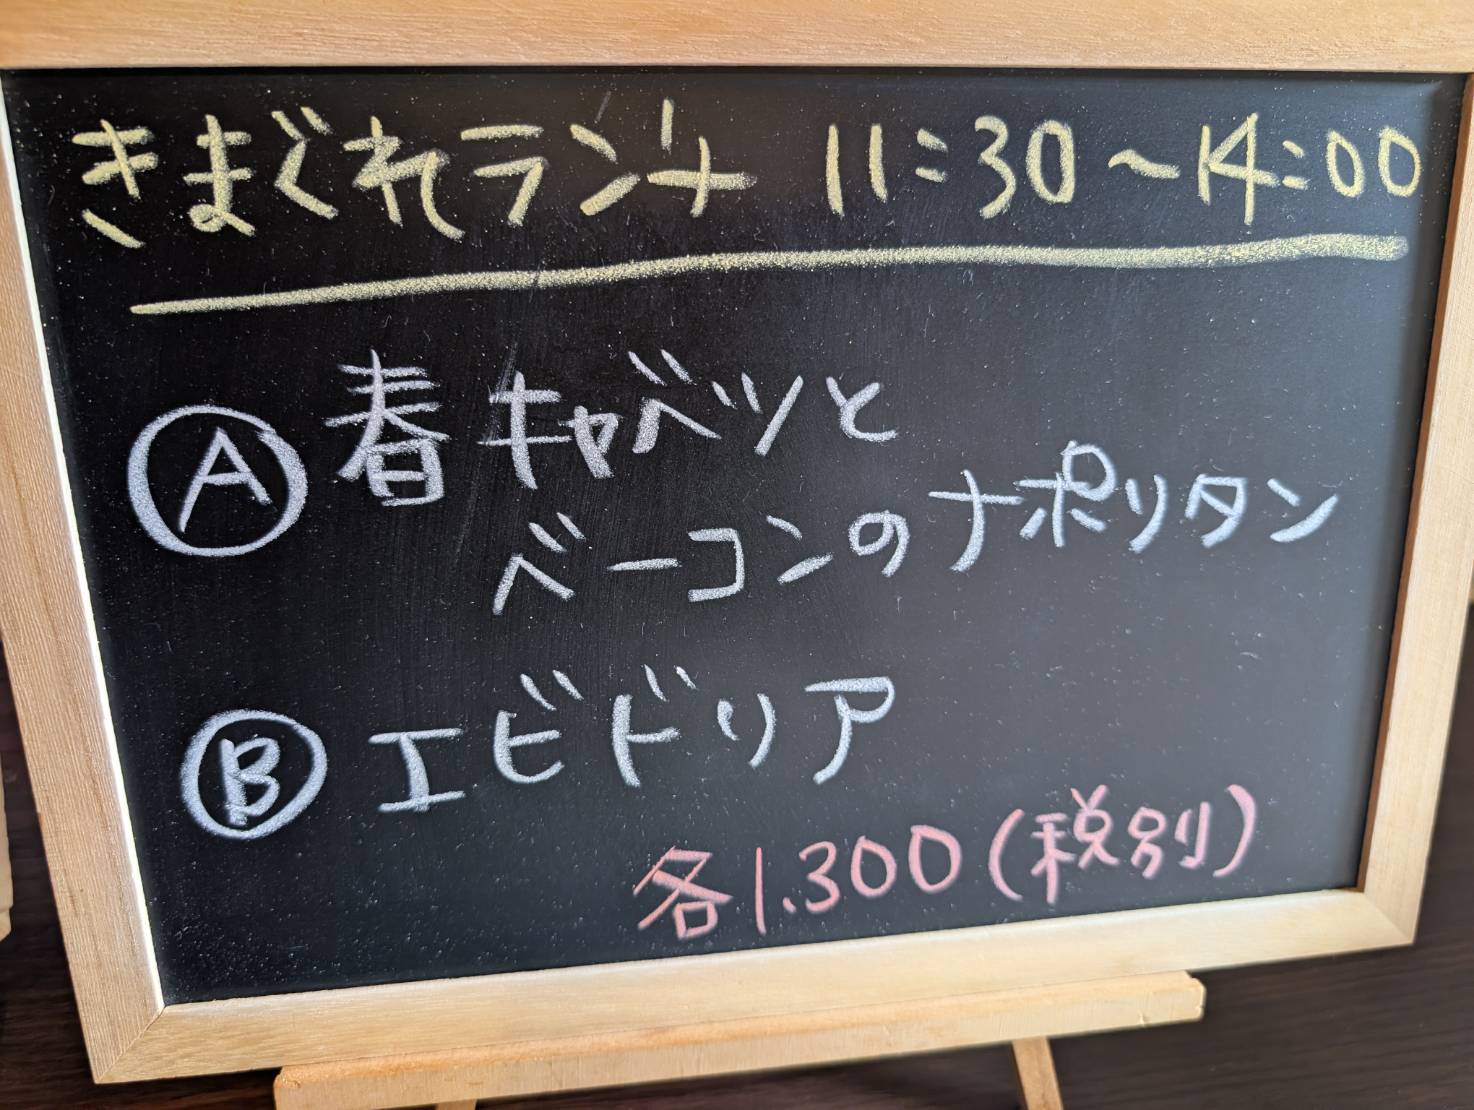 きまぐれランチ 11:30〜14:00
Ⓐ 春キャベツと
ベーコンのナポリタン
Ⓑ エビドリア
各1.300(税別)